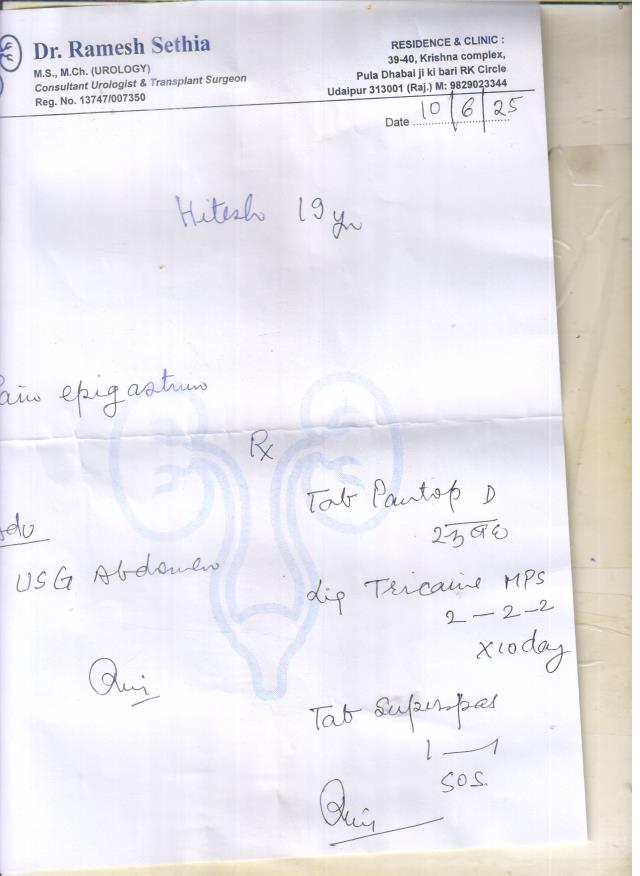 Dr. Ramesh Sethia
M.S., M.Ch. (UROLOGY)
Consultant Urologist & Transplant Surgeon
Reg. No. 13747/007350
RESIDENCE & CLINIC :
39-40, Krishna complex,
Pula Dhabai ji ki bari RK Circle
Udaipur 313001 (Raj.) M: 9829023344
Date 10/6/25
Hitesh 19 yr
Pain epigastrium
Rx
Tab Pantop D
Adv
USG Abdomen
Liq Tricaine MPS
2-2-2
x10 day
Tab Superspas
1—1
SOS.